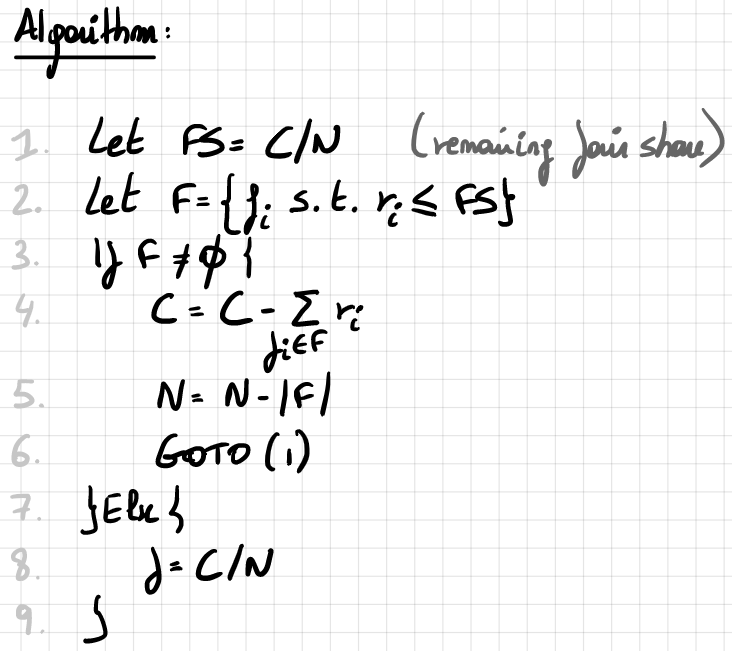 Algorithm:
1. Let FS = C/N (remaining fair share)
2. Let F = {fi s.t. ri ≤ FS}
3. If F ≠ ϕ {
4. C = C - Σ ri
fi∈F
5. N = N - |F|
6. GOTO (1)
7. }Else {
8. f = C/N
9. }